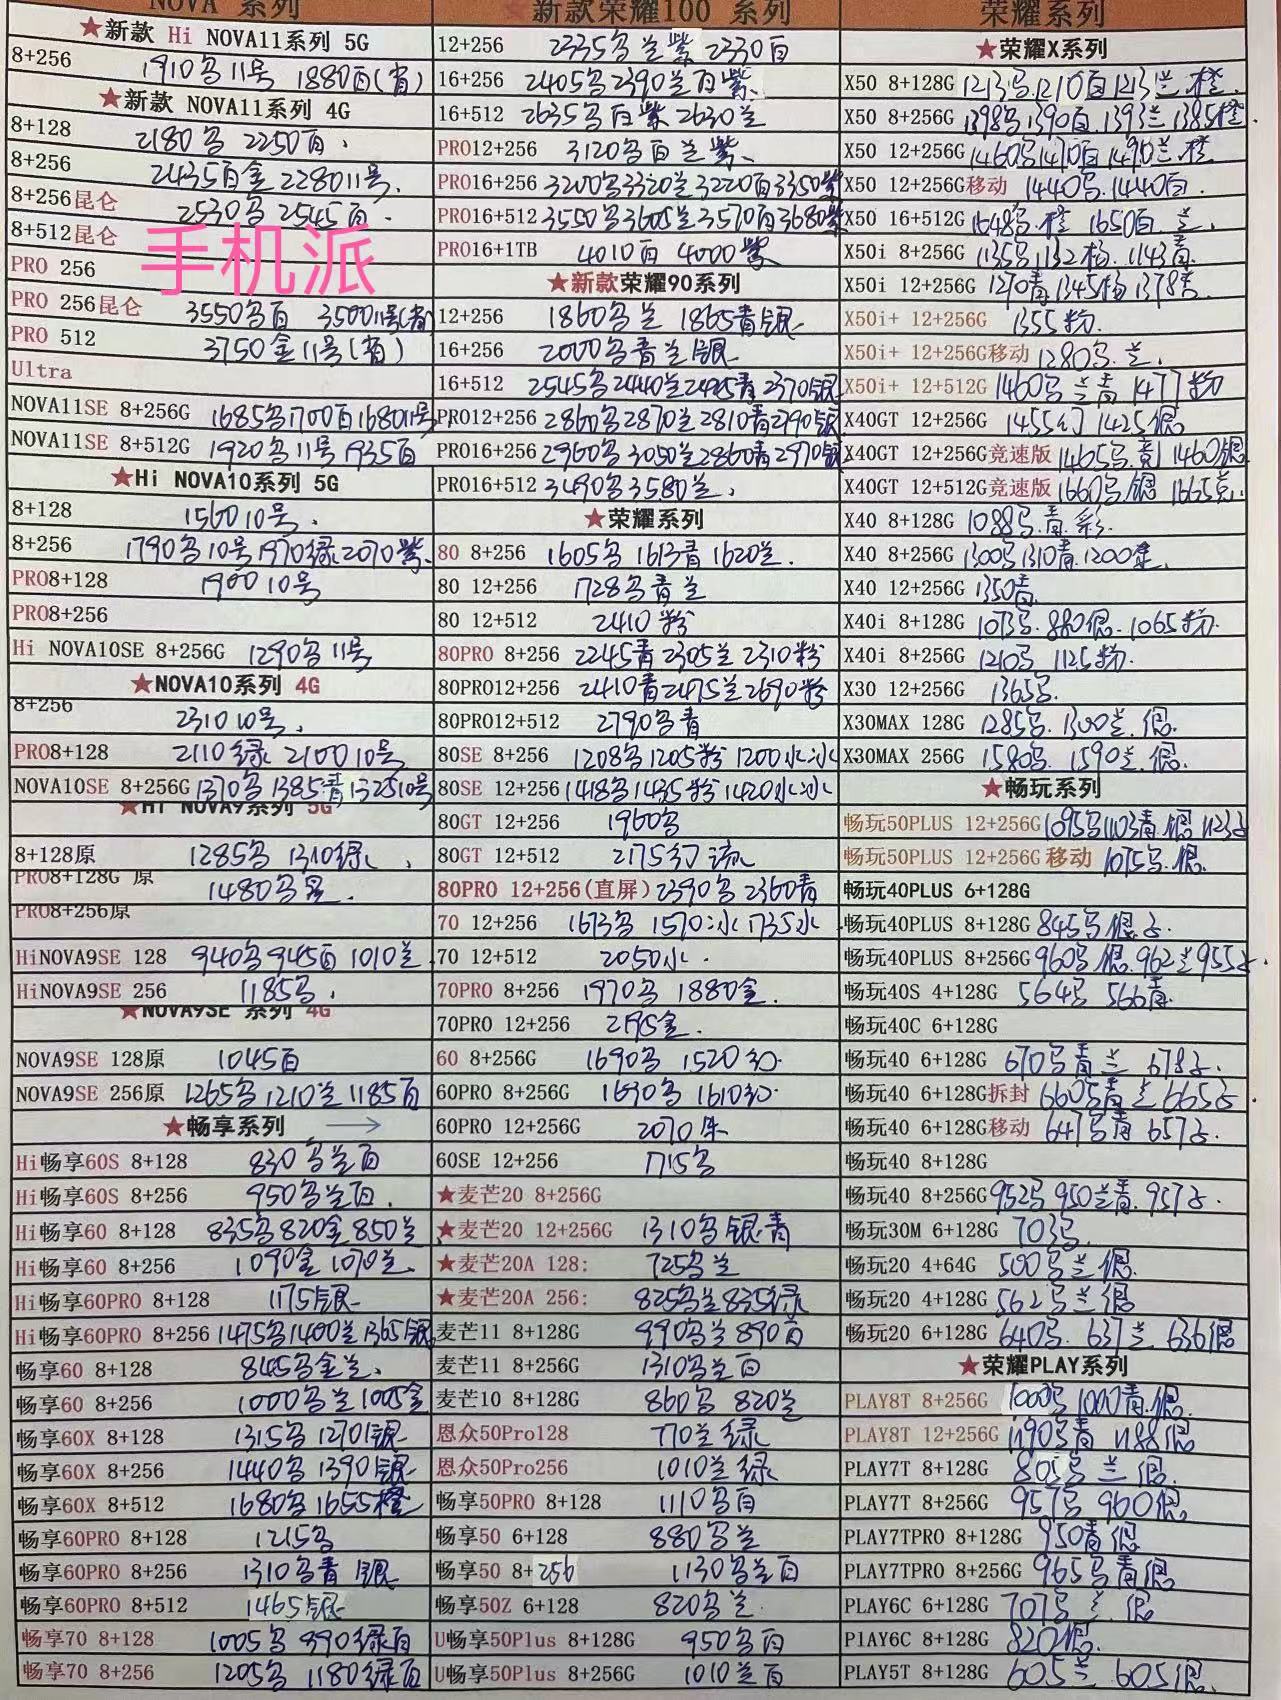 NOVA 系列
★新款 Hi NOVA11系列 5G
8+256 1910 11号 1880
★新款 NOVA11系列 4G
8+128 2180 2250
8+256 2435 2280 11号
8+256昆仑 2530 2545
8+512昆仑
手机派
PRO 256
PRO 256昆仑 3550 3500 11号
PRO 512 3750金 11号
Ultra
NOVA11SE 8+256G 1685 1700 1680 11号
NOVA11SE 8+512G 1920 11号 1935
★Hi NOVA10系列 5G
8+128 1560 10号
8+256 1790 10号 1970绿 2070紫
PRO8+128 1900 10号
PRO8+256
Hi NOVA10SE 8+256G 1290 11号
★NOVA10系列 4G
8+256 2310 10号
PRO8+128 2110绿 2100 10号
NOVA10SE 8+256G 1370 1385青 1325 10号
★Hi NOVA9系列 5G
8+128原 1285 1310绿
PRO8+128G 原 1480
PRO8+256原
HiNOVA9SE 128 940 945 1010兰
HiNOVA9SE 256 1185
★NOVA9SE 系列 4G
NOVA9SE 128原 1045
NOVA9SE 256原 1265 1210兰 1185
★畅享系列 →
Hi畅享60S 8+128 830 兰
Hi畅享60S 8+256 950 兰
Hi畅享60 8+128 835 820金 850兰
Hi畅享60 8+256 1090金 1070兰
Hi畅享60PRO 8+128 1175银
Hi畅享60PRO 8+256 1475 1400兰 1365银
畅享60 8+128 845 金兰
畅享60 8+256 1000 兰 1005金
畅享60X 8+128 1315 1270银
畅享60X 8+256 1440 1390银
畅享60X 8+512 1680 1655橙
畅享60PRO 8+128 1215
畅享60PRO 8+256 1310 青 银
畅享60PRO 8+512 1465银
畅享70 8+128 1005 990绿
畅享70 8+256 1205 1180绿
新款荣耀100 系列
12+256 2335 兰紫 2330
16+256 2405 2390兰 紫
16+512 2635 紫 2630兰
PRO12+256 3120 兰紫
PRO16+256 3200 3320兰 3220 3350紫
PRO16+512 3550 3605兰 3570 3680紫
PRO16+1TB 4010 4000紫
★新款荣耀90系列
12+256 1860 兰 1865青银
16+256 2000 青兰银
16+512 2545 2440兰 2495青 2370银
PRO12+256 2860 2870兰 2810青 2790银
PRO16+256 2960 3050兰 2860青 2970银
PRO16+512 3490 3580兰
★荣耀系列
80 8+256 1605 1613青 1620兰
80 12+256 1728 青兰
80 12+512 2410粉
80PRO 8+256 2245青 2305兰 2310粉
80PRO12+256 2410青 2475兰 2690粉
80PRO12+512 2790 青
80SE 8+256 1208 1205粉 1200
80SE 12+256 1418 1435粉 1420
80GT 12+256 1960
80GT 12+512 2175幻 流
80PRO 12+256(直屏) 2390 2360青
70 12+256 1673 1570冰 1735水
70 12+512 2050
70PRO 8+256 1970 1880金
70PRO 12+256 2195金
60 8+256G 1690 1520幻
60PRO 8+256G 1690 1610幻
60PRO 12+256G 2070朱
60SE 12+256 1715
★麦芒20 8+256G
★麦芒20 12+256G 1310 银青
★麦芒20A 128: 725 兰
★麦芒20A 256: 825 兰 835绿
麦芒11 8+128G 990 兰 890
麦芒11 8+256G 1310 兰
麦芒10 8+128G 860 820兰
恩众50Pro128 770兰绿
恩众50Pro256 1010兰绿
畅享50PRO 8+128 1110
畅享50 6+128 880 兰
畅享50 8+256 1130 兰
畅享50Z 6+128 820 兰
U畅享50Plus 8+128G 950
U畅享50Plus 8+256G 1010兰
荣耀系列
★荣耀X系列
X50 8+128G 1213 1210 1213兰 橙
X50 8+256G 1398 1390 1393兰 1385橙
X50 12+256G 1460 1470 1490兰 橙
X50 12+256G移动 1440 1440
X50 16+512G 1648 橙 1650 兰
X50i 8+256G 1135 1132粉 1143青
X50i 12+256G 1270青 1345粉 1378
X50i+ 12+256G 1355粉
X50i+ 12+256G移动 1280 兰
X50i+ 12+512G 1460 兰青 1477粉
X40GT 12+256G 1455幻 1425银
X40GT 12+256G竞速版 1465 竞 1460银
X40GT 12+512G竞速版 1660 银 1665竞
X40 8+128G 1088 青 彩
X40 8+256G 1300 1310青 1200金
X40 12+256G 1350青
X40i 8+128G 1073 880银 1065粉
X40i 8+256G 1210 1125粉
X30 12+256G 1365
X30MAX 128G 1285 1300兰 银
X30MAX 256G 1580 1590兰 银
★畅玩系列
畅玩50PLUS 12+256G 1095 1103青 银 1123
畅玩50PLUS 12+256G移动 1075 银
畅玩40PLUS 6+128G
畅玩40PLUS 8+128G 845 银
畅玩40PLUS 8+256G 960 银 962兰 955
畅玩40S 4+128G 564 566青
畅玩40C 6+128G
畅玩40 6+128G 670 青兰 678
畅玩40 6+128G拆封 660 青兰 665
畅玩40 6+128G移动 647 青 657
畅玩40 8+128G
畅玩40 8+256G 952 950兰青 957
畅玩30M 6+128G 703
畅玩20 4+64G 500 兰银
畅玩20 4+128G 562 兰银
畅玩20 6+128G 640 637兰 636银
★荣耀PLAY系列
PLAY8T 8+256G 1000 1000青 银
PLAY8T 12+256G 1190 青 1188银
PLAY7T 8+128G 805 兰 银
PLAY7T 8+256G 957 960银
PLAY7TPRO 8+128G 950青银
PLAY7TPRO 8+256G 965 青银
PLAY6C 6+128G 707 兰 银
PlAY6C 8+128G 820银
PLAY5T 8+128G 605兰 605银